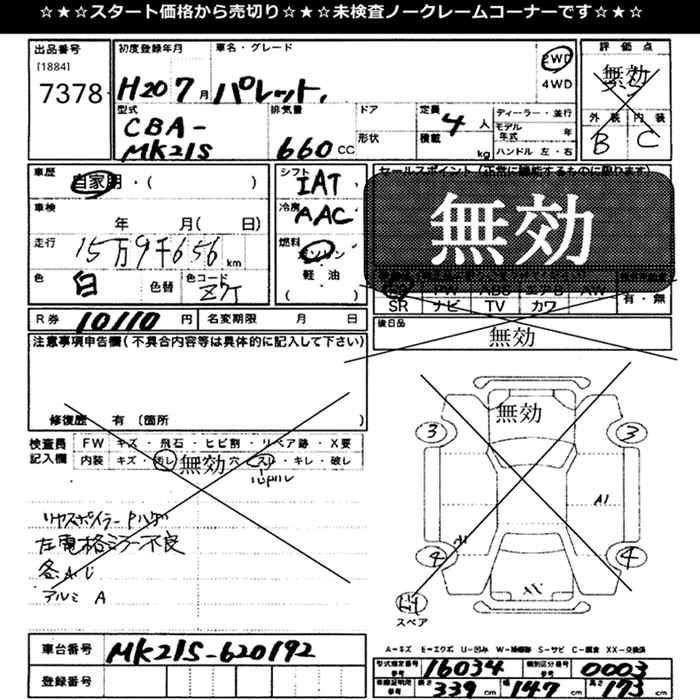 ☆★☆スタート価格から売切り☆★☆未検査ノークレームコーナーです☆★☆
出品番号
[1884]
7378
初度登録年月
H20 7月
車名・グレード
パレット
2WD
4WD
評価点
無効
外装 内装
B C
型式
CBA-
MK21S
排気量
660 CC
ドア
形状
定員
4人
積載
kg
ディーラー・並行
モデル年式 年
ハンドル 左・右
車歴
自家用・( )
車検
年 月( 日)
走行
15万9千656 km
色
白
色替
色コード
Z7T
シフト
IAT
冷房
AAC
燃料
ガソリン
軽油
( )
セールスポイント (正常に機能するものに限ります)
無効
SR ナビ TV カワ
有・無
R券 10110 円
名変期限 月 日
後日品
無効
注意事項申告欄 (不具合内容等は具体的に記入して下さい)
修復歴 有 (箇所 )
検査員記入欄
FW キズ・飛石・ヒビ割・リペア跡・X要
内装 キズ・汚レ・無効 穴・スレ・キレ・破レ
リヤスポイラーPハゲ
左電格ミラー不良
各A U
アルミ A
無効
3
3
A1
4
4
スペア
A-キズ E-エクボ U-凹み W-補修跡 S-サビ C-腐食 XX-交換済
車台番号 MK21S-620192
登録番号
型式指定番号 参考 16034
類別区分番号 参考 0003
車検証記載 参考 長さ 339 cm 幅 147 cm 高さ 173 cm